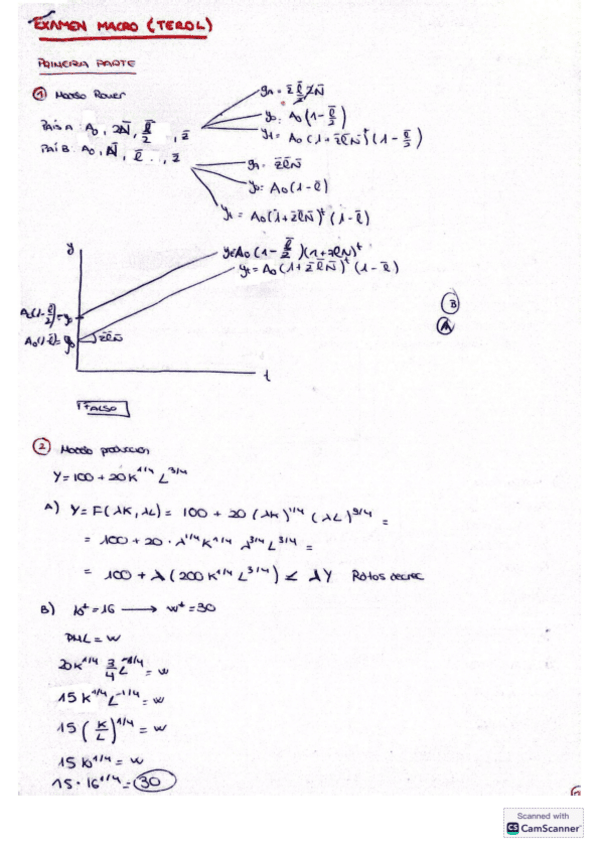 EXAMEN MACRO (TEROL)
PRIMERA PARTE
1 Modelo Romer
PAÍS A: A₀, 2N̄, l̄/2 , z̄
PAÍS B: A₀, N̄, l̄ .. , z̄
gA = z̄ l̄/2 2N̄
y₀ = A₀(1 - l̄/2)
yt = A₀(1+z̄l̄N̄)ᵗ(1 - l̄/2)
gA = z̄l̄N̄
y₀ = A₀(1-l̄)
yt = A₀(1+z̄l̄N̄)ᵗ(1-l̄)
y
yt=A₀(1-l̄/2)(1+zlN)ᵗ
yt=A₀(1+z̄l̄N̄)ᵗ(1-l̄)
A₀(1-l̄/2)=y₀
A₀(1-l̄)=y₀
z̄l̄N̄
t
B
A
FALSO
2 Modelo produccion
Y=100+20K^1/4 L^3/4
A) Y=F(λK,λL)= 100+20(λK)^1/4 (λL)^3/4 =
= 100+20·λ^1/4 K^1/4 λ^3/4 L^3/4 =
= 100+λ(200K^1/4 L^3/4) < λY Rdtos decrec
B) k*=16 → w*=30
PML = w
20K^1/4 3/4 L^-1/4 = w
15K^1/4 L^-1/4 = w
15(K/L)^1/4 = w
15k^1/4 = w
15·16^1/4 = 30
Scanned with
CS CamScanner